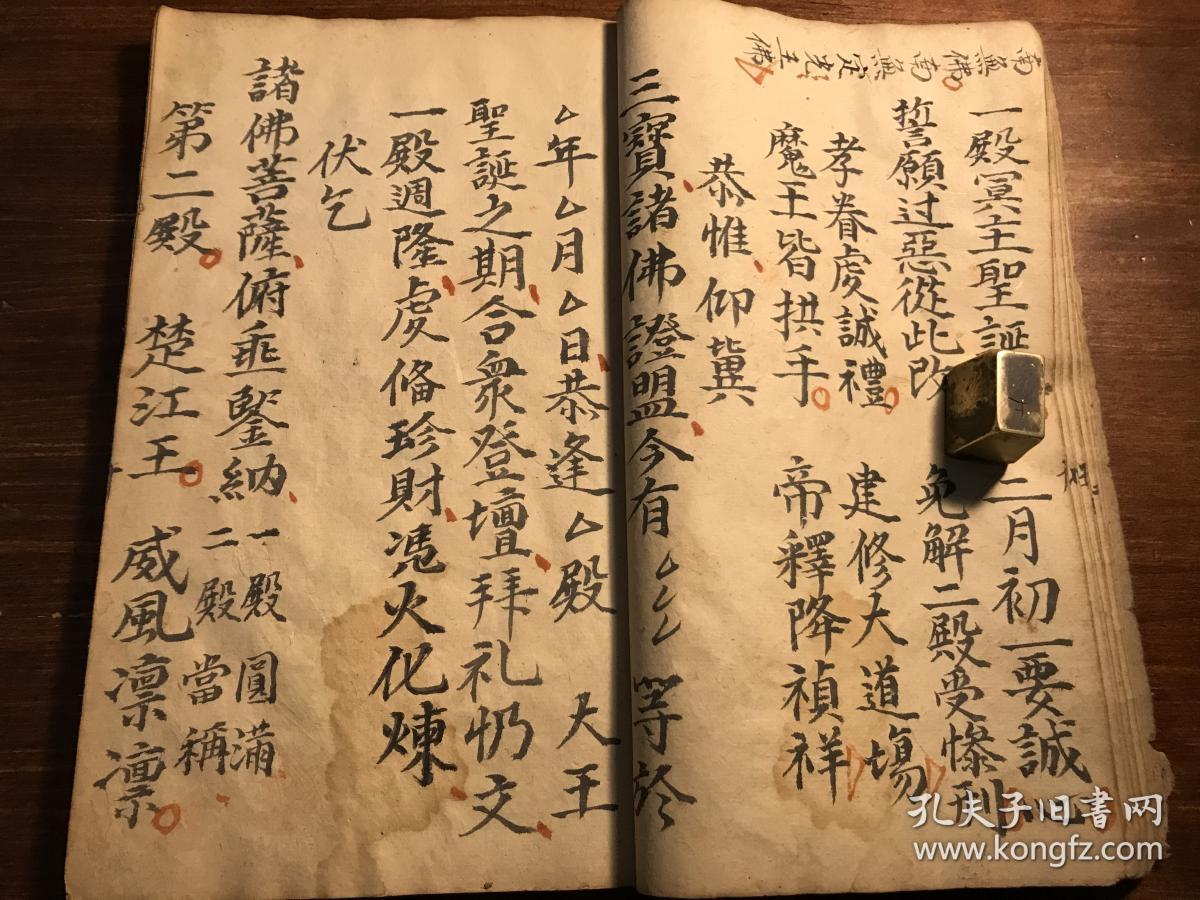 南無佛。南無 王佛
一殿冥王聖誕 二月初一要誠
誓願过惡從此改 免解二殿受慘刑
孝眷虔誠禮。 建修大道場
魔王皆拱手。 帝釋降禎祥
恭惟、仰冀
三寶諸佛證盟、今有厶厶厶等於
厶年厶月厶日、恭逢厶殿 大王
聖誕之期、合衆登壇、拜礼忏文、
一殿週隆、虔俻珍財、馮火化煉、
伏乞
諸佛菩薩、俯垂鑒納、 一殿圓滿
二殿當稱
第二殿。 楚江王。 威風凛凛。
孔夫子旧书网
www.kongfz.com